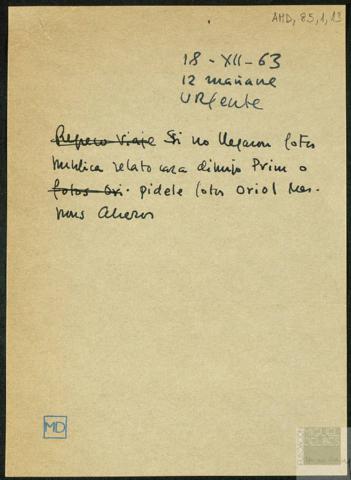 AMD, 85, 1, 13
18 - XII - 63
12 mañana
URgente
Regreso Viaje Si no llegaron fotos
publica relato casa dibujo Prim o
fotos Ori. pidele fotos Oriol Mas-
pons Abrazos
MD